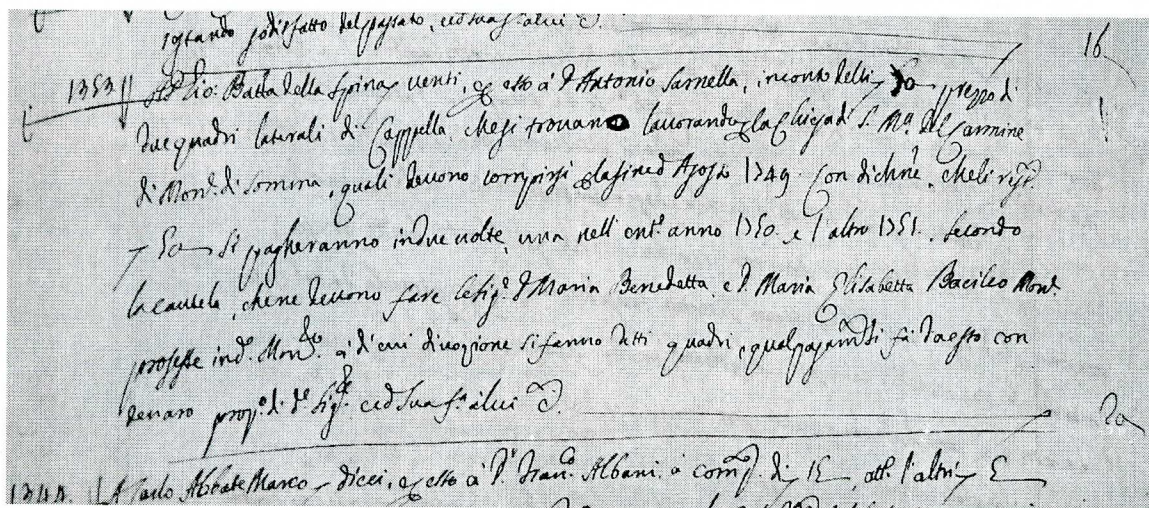 restando sodisfatto del passato, e ced sua fa. a lui d.
16
1353 A D. Gio: Batta della Spina d. venti, e per esso a D. Antonio Sarnella, in conto delli d. 70 prezzo di
due quadri laterali di Cappella, che si trovano lavorando per la Chiesa di S. Ma. del Carmine
di Mont. di Somma, quali devono compirsi per la fine d'Agosto 1749. Con dichne. che li rest.
d. 50 si pagheranno in due volte, una nell'ent. anno 1750. e l'altro 1751. secondo
la cautela, che ne devono fare le sige. D. Maria Benedetta, e D. Maria Elisabetta Basileo Mon.
professe in do. Monro. a di cui divozione si fanno detti quadri, qual pagamto. si fa da esso con
denaro propo. di de. Sige. e ced sua fa. a lui d.
20
1344. A Paolo Abbate Marco d. dieci, e per esso a D. Franco. Albani, a comp. di d. 15 att. l'altri d. 5